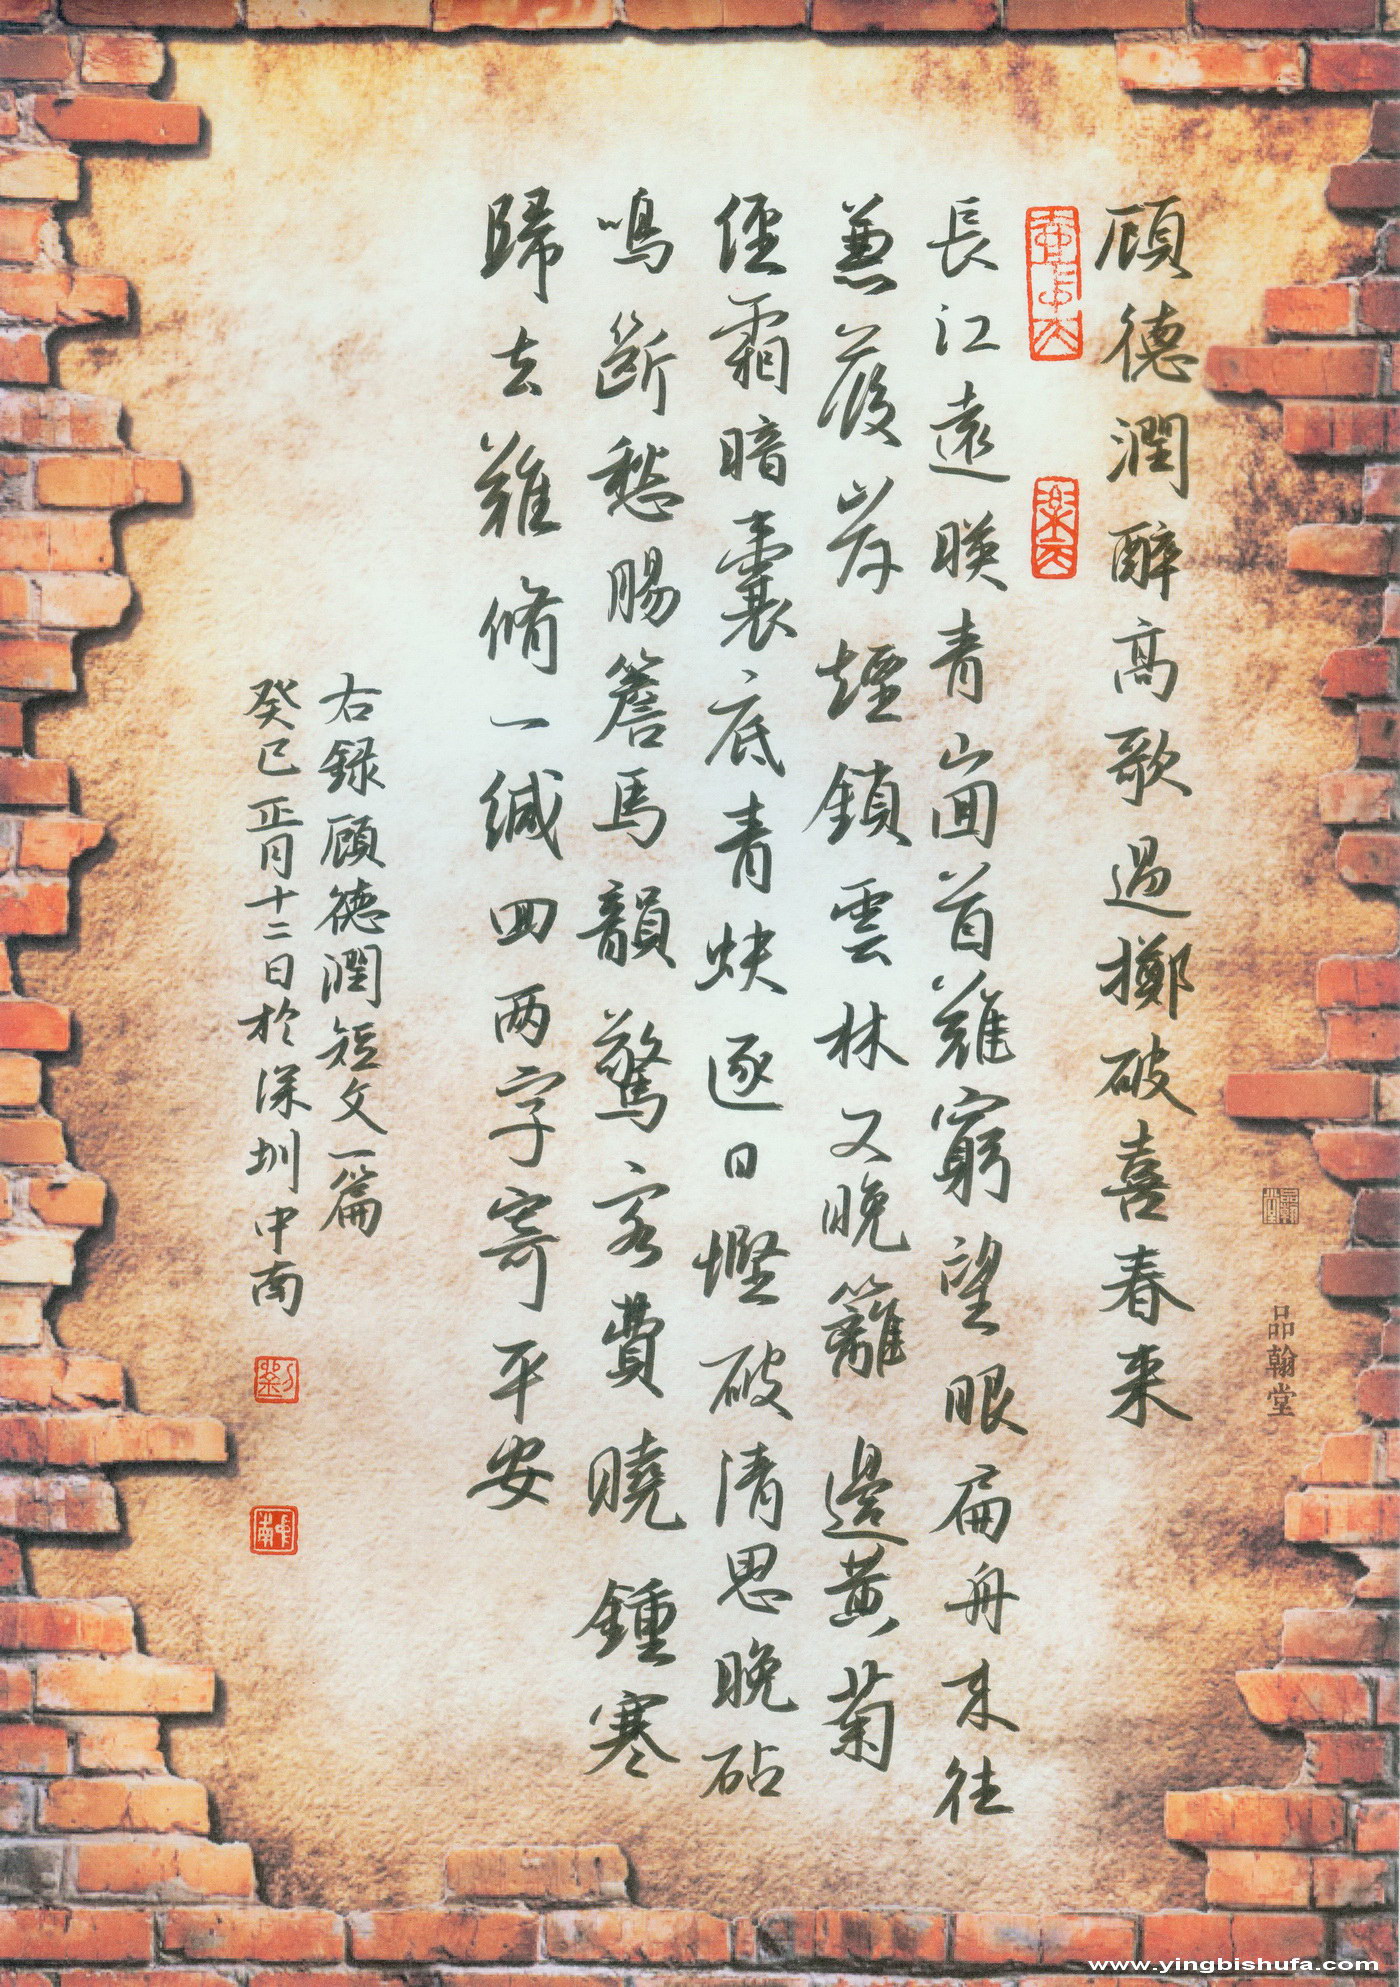 顾德潤醉高歌過擲破喜春来
長江遠暎青山囬首難窮望眼扁舟来往
蒹葭岸煙鎖雲林又晚籬邊黄菊
經霜暗囊底青蚨逐日慳破清思晚砧
鳴斷愁腸簷馬韻驚客曉鍾寒
歸去難脩一緘回两字寄平安
右録顾德潤短文一篇
癸巳正月十二日於深圳中南
品翰堂
www.yingbishufa.com